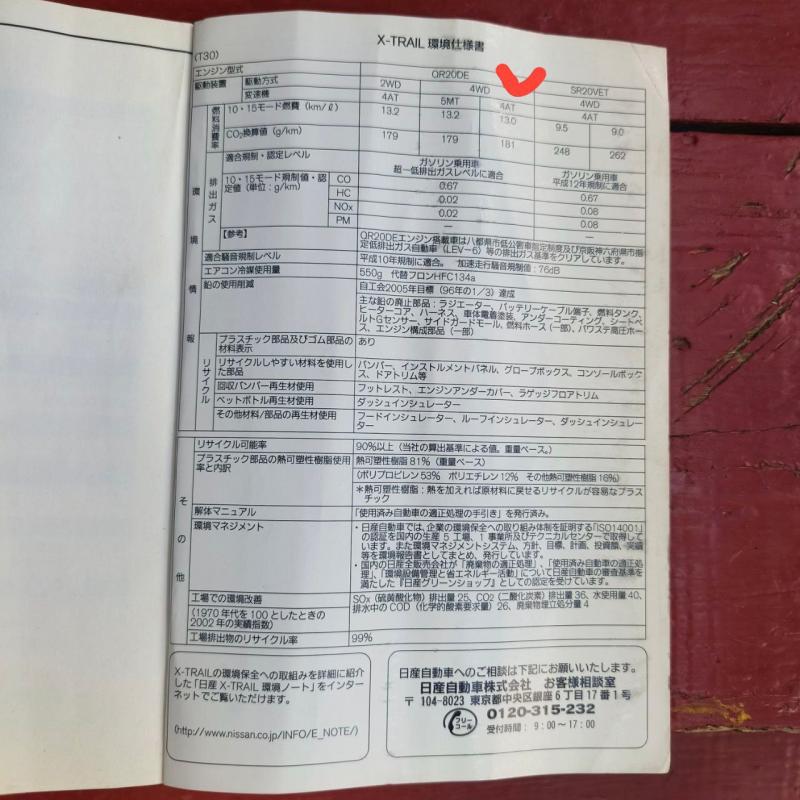 X-TRAIL 環境仕様書
(T30)
エンジン型式 QR20DE SR20VET
駆動装置 駆動方式 2WD 4WD 4WD
変速機 4AT 5MT 4AT 4AT
燃料消費率 10・15モード燃費 (km/ℓ) 13.2 13.2 13.0 9.5 9.0
CO2換算値 (g/km) 179 179 181 248 262
環境情報
排出ガス 適合規制・認定レベル ガソリン乗用車 ガソリン乗用車
超－低排出ガスレベルに適合 平成12年規制に適合
10・15モード規制値・認定値 (単位:g/km) CO 0.67 0.67
HC 0.02 0.08
NOx 0.02 0.08
PM － －
【参考】 QR20DEエンジン搭載車は八都県市低公害車指定制度及び京阪神六府県市指
定低排出ガス自動車 (LEV-6) 等の排出ガス基準をクリアしています。
適合騒音規制レベル 平成10年規制に適合。 加速走行騒音規制値:76dB
エアコン冷媒使用量 550g 代替フロンHFC134a
鉛の使用削減 自工会2005年目標 ('96年の1/3) 達成
主な鉛の廃止部品:ラジエーター、バッテリーケーブル端子、燃料タンク、
ヒーターコア、ハーネス、車体電着塗装、アンダーコーティング、シートベ
ルトGセンサー、サイドガードモール、燃料ホース (一部)、パワステ高圧ホー
ス、エンジン構成部品 (一部)
リサイクル
プラスチック部品及びゴム部品の あり
材料表示
リサイクルしやすい材料を使用し バンパー、インストルメントパネル、グローブボックス、コンソールボック
た部品 ス、ドアトリム等
回収バンパー再生材使用 フットレスト、エンジンアンダーカバー、ラゲッジフロアトリム
ペットボトル再生材使用 ダッシュインシュレーター
その他材料/部品の再生材使用 フードインシュレーター、ルーフインシュレーター、ダッシュインシュレー
ター
その他
リサイクル可能率 90%以上 (当社の算出基準による値。重量ベース。)
プラスチック部品の熱可塑性樹脂使用 熱可塑性樹脂81% (重量ベース)
率と内訳 (ポリプロピレン53% ポリエチレン12% その他熱可塑性樹脂16%)
＊熱可塑性樹脂:熱を加えれば原材料に戻せるリサイクルが容易なプラス
チック
解体マニュアル 「使用済み自動車の適正処理の手引き」を発行済み。
環境マネジメント ・日産自動車では、企業の環境保全への取り組み体制を証明する「ISO14001」
の認証を国内の生産5工場、1事業所及びテクニカルセンターで取得して
います。また環境マネジメントシステム、方針、目標、計画、投資額、実績
等を環境報告書としてまとめ、発行しています。
・国内の日産全販売会社が「廃棄物の適正処理」、「使用済み自動車の適正処
理」、「環境設備管理と省エネルギー活動」について日産自動車の審査基準を
満たした『日産グリーンショップ』としての認定を受けています。
工場での環境改善 SOx (硫黄酸化物) 排出量25、CO2 (二酸化炭素) 排出量36、水使用量40、
(1970年代を100としたときの 排水中のCOD (化学的酸素要求量) 26、廃棄物埋立処分量4
2002年の実績指数)
工場排出物のリサイクル率 99%
X-TRAILの環境保全への取組みを詳細に紹介
した「日産X-TRAIL環境ノート」をインター
ネットでご覧いただけます。
(http://www.nissan.co.jp/INFO/E_NOTE/)
日産自動車へのご相談は下記にお願いいたします。
日産自動車株式会社 お客様相談室
〒104-8023 東京都中央区銀座6丁目17番1号
フリーコール 0120-315-232
受付時間:9:00～17:00